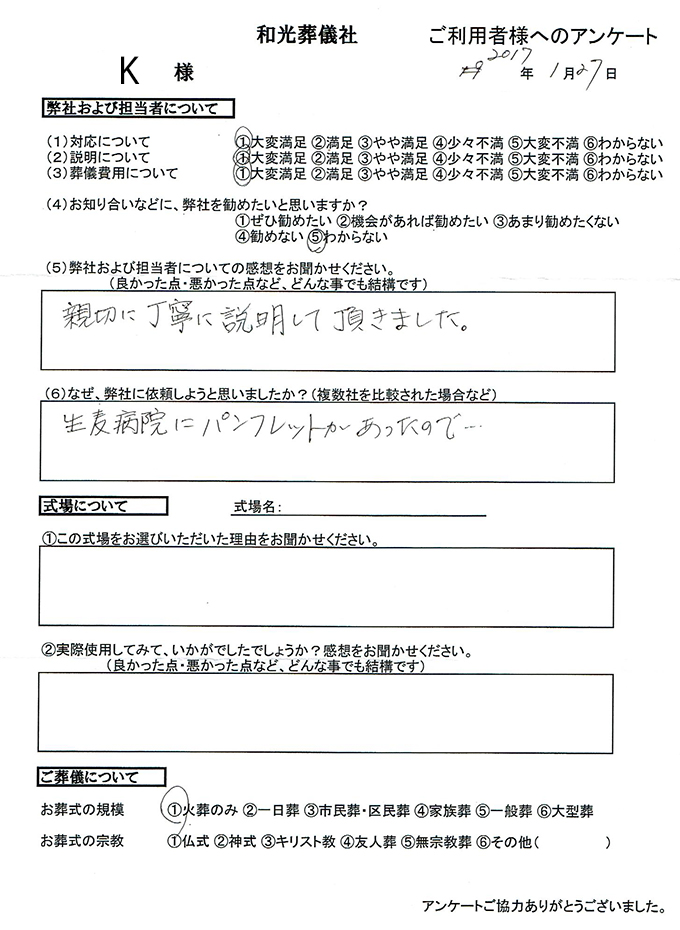 和光葬儀社 ご利用者様へのアンケート
K 様 2017年 1月27日
弊社および担当者について
(1)対応について ①大変満足 ②満足 ③やや満足 ④少々不満 ⑤大変不満 ⑥わからない
(2)説明について ①大変満足 ②満足 ③やや満足 ④少々不満 ⑤大変不満 ⑥わからない
(3)葬儀費用について ①大変満足 ②満足 ③やや満足 ④少々不満 ⑤大変不満 ⑥わからない
(4)お知り合いなどに、弊社を勧めたいと思いますか?
①ぜひ勧めたい ②機会があれば勧めたい ③あまり勧めたくない
④勧めない ⑤わからない
(5)弊社および担当者についての感想をお聞かせください。
(良かった点・悪かった点など、どんな事でも結構です)
親切に丁寧に説明して頂きました。
(6)なぜ、弊社に依頼しようと思いましたか?(複数社を比較された場合など)
生麦病院にパンフレットがあったので…
式場について 式場名:
①この式場をお選びいただいた理由をお聞かせください。
②実際使用してみて、いかがでしたでしょうか?感想をお聞かせください。
(良かった点・悪かった点など、どんな事でも結構です)
ご葬儀について
お葬式の規模 ①火葬のみ ②一日葬 ③市民葬・区民葬 ④家族葬 ⑤一般葬 ⑥大型葬
お葬式の宗教 ①仏式 ②神式 ③キリスト教 ④友人葬 ⑤無宗教葬 ⑥その他( )
アンケートご協力ありがとうございました。